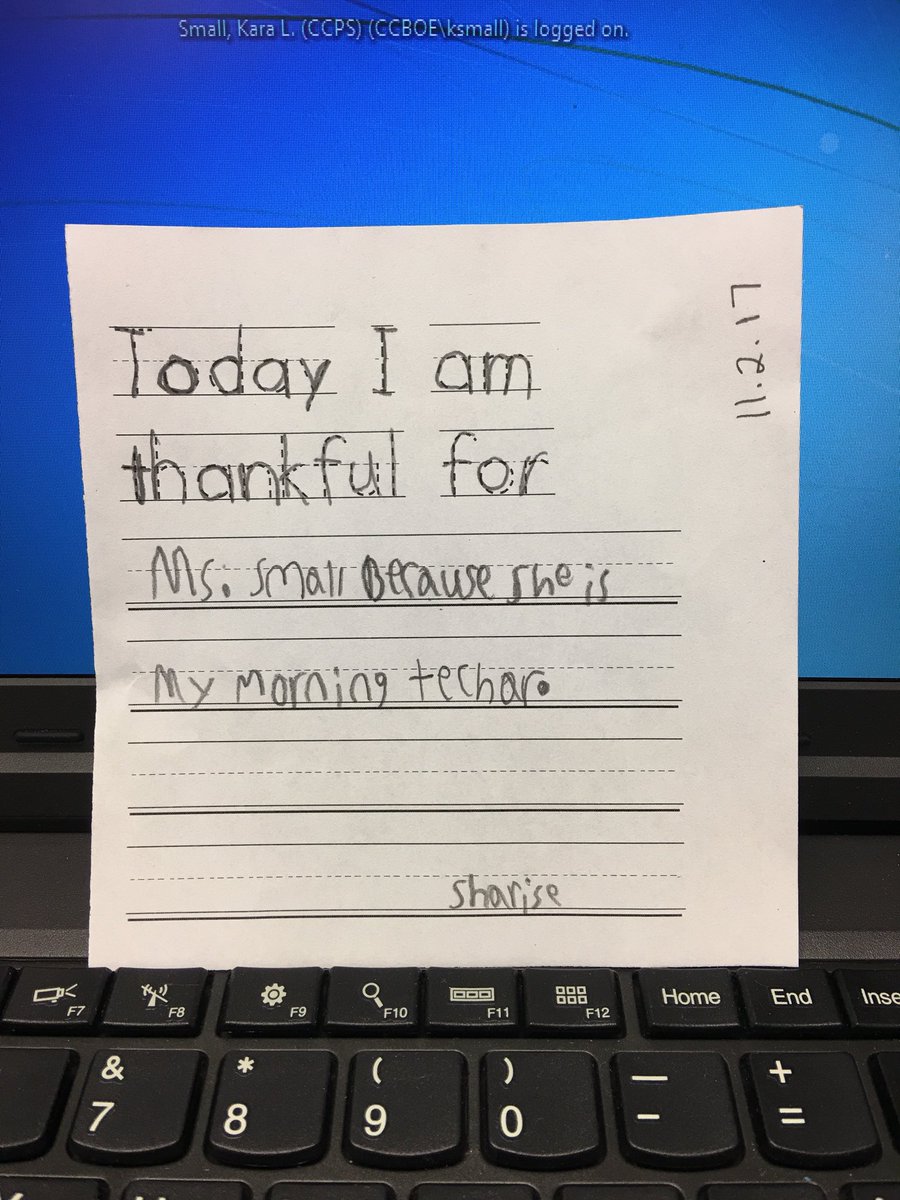 Small, Kara L. (CCPS) (CCBOE\ksmall) is logged on.
11.2.17
Today I am
thankful for
Ms. Small Because she is
My Morning techar.
sharise
F7 F8 F9 F10 F11 F12 Home End Inse
& * ( ) — +
7 8 9 0 - =